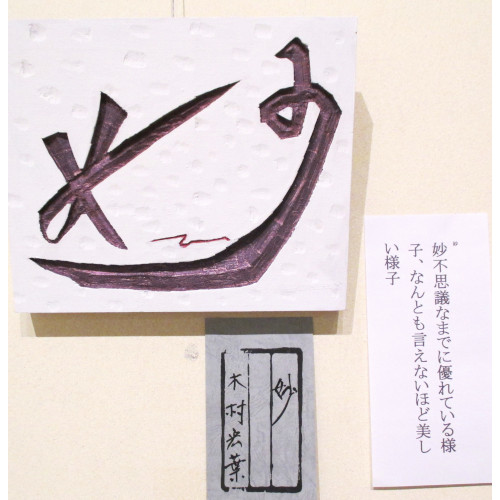 妙
妙
木村宏葉
妙不思議なまでに優れている様
子、なんとも言えないほど美し
い様子